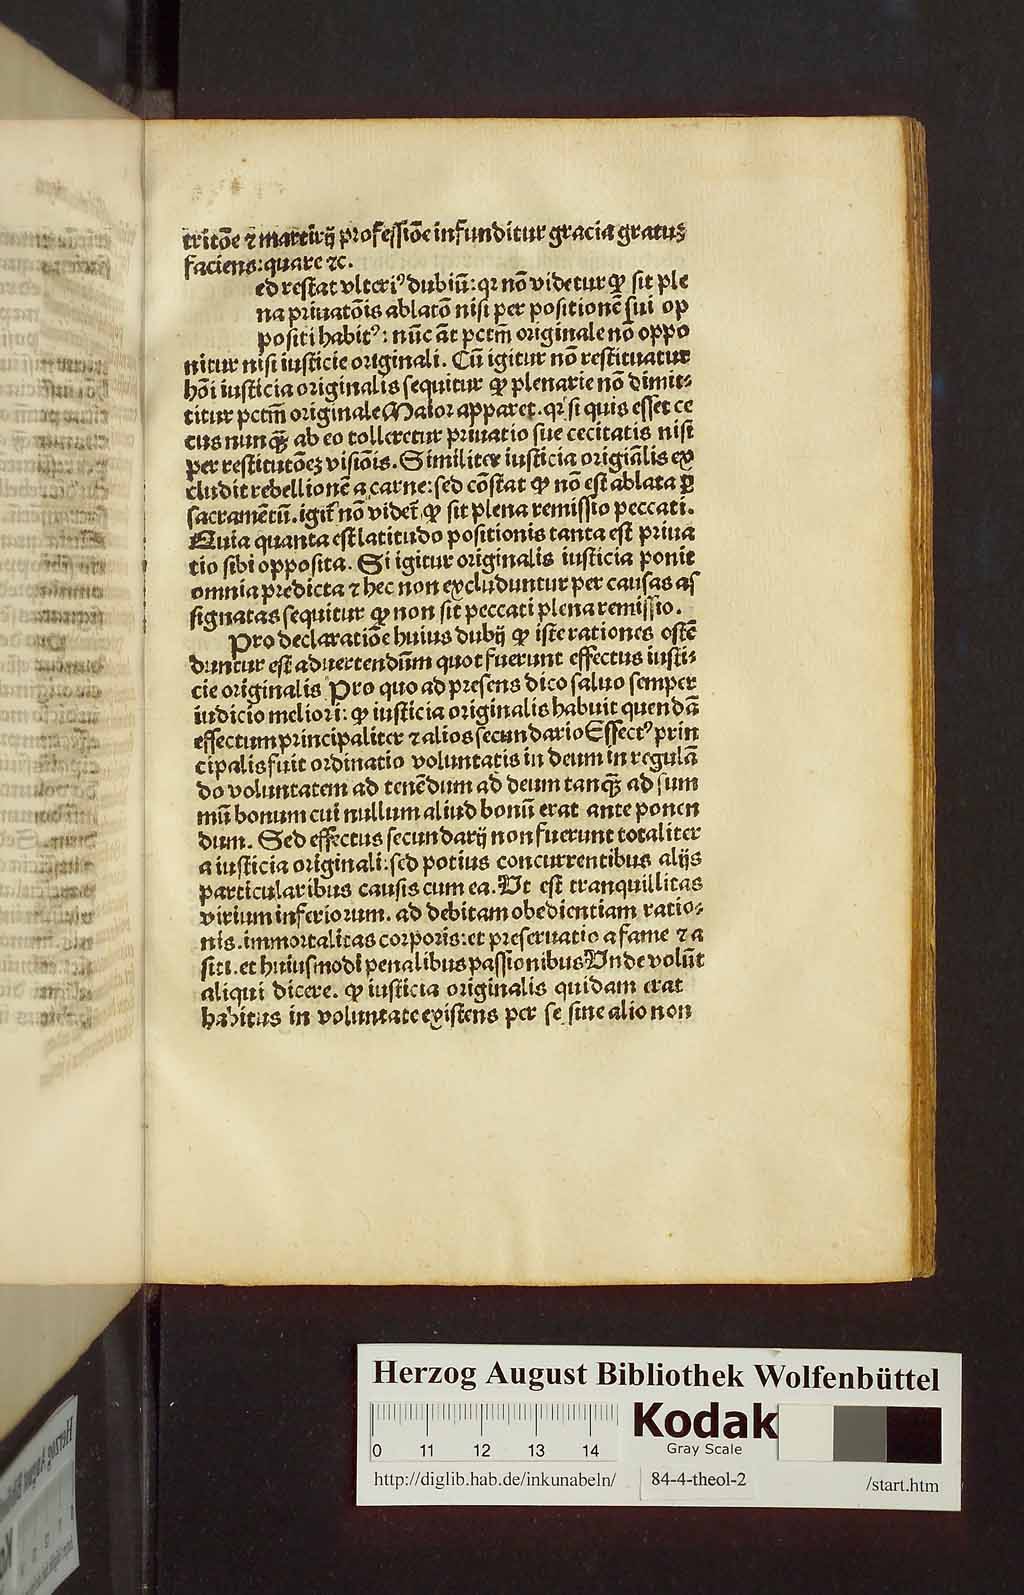 tritōe ⁊ martirij professiōe infunditur gracia gratuȝ
faciens: quare ⁊c.
ed restat vlteriꝰ dubiū: qr nō videtur ꝙ sit ple
na priuatōis ablatō nisi per positionē sui op
positi habitꝰ: nūc āt pctm̄ originale nō oppo
nitur nisi iusticie originali. Cū igitur nō restituatur
hōi iusticia originalis sequitur ꝙ plenarie nō dimit⸗
titur pctm̄ originale Maior apparet. qr si quis esset ce
cus nunqȝ̄ ab eo tolleretur priuatio sue cecitatis nisi
per restitutōeȝ visiōis. Similiter iusticia origiālis ex
cludit rebellionē a carne: sed cōstat ꝙ nō est ablata ꝑ
sacramētū. igit̄ nō videt̄ ꝙ sit plena remissio peccati.
Quia quanta est latitudo positionis tanta est priua
tio sibi opposita. Si igitur originalis iusticia ponit
omnia predicta ⁊ hec non excluduntur per causas as
signatas sequitur ꝙ non sit peccati plena remissio.
Pro declaratiōe huius dubij ꝙ iste rationes ostē
duntur est aduertendūm quot fuerunt effectus iusti⸗
cie originalis Pro quo ad presens dico saluo semper
iudicio meliori: ꝙ iusticia originalis habuit quendā
effectum principaliter ⁊ alios secundario Effectꝰ prin
cipalis fuit ordinatio voluntatis in deum in regulā
do voluntatem ad tenēdum ad deum tanqȝ̄ ad sum
mū bonum cui nullum aliud bonū erat ante ponen
dum. Sed effectus secundarij non fuerunt totaliter
a iusticia originali: sed potius concurrentibus alijs
particularibus causis cum ea. Vt est tranquillitas
virium inferiorum. ad debitam obedientiam ratio⸗
nis. immortalitas corporis: et preseruatio a fame ⁊ a
siti. et huiusmodi penalibus passionibus Vnde volūt
aliqui dicere. ꝙ iusticia originalis quidam erat
habitus in voluntate existens per se sine alio non
Herzog August Bibliothek Wolfenbüttel
0 11 12 13 14
Kodak
Gray Scale
http://diglib.hab.de/inkunabeln/ 84-4-theol-2 /start.htm